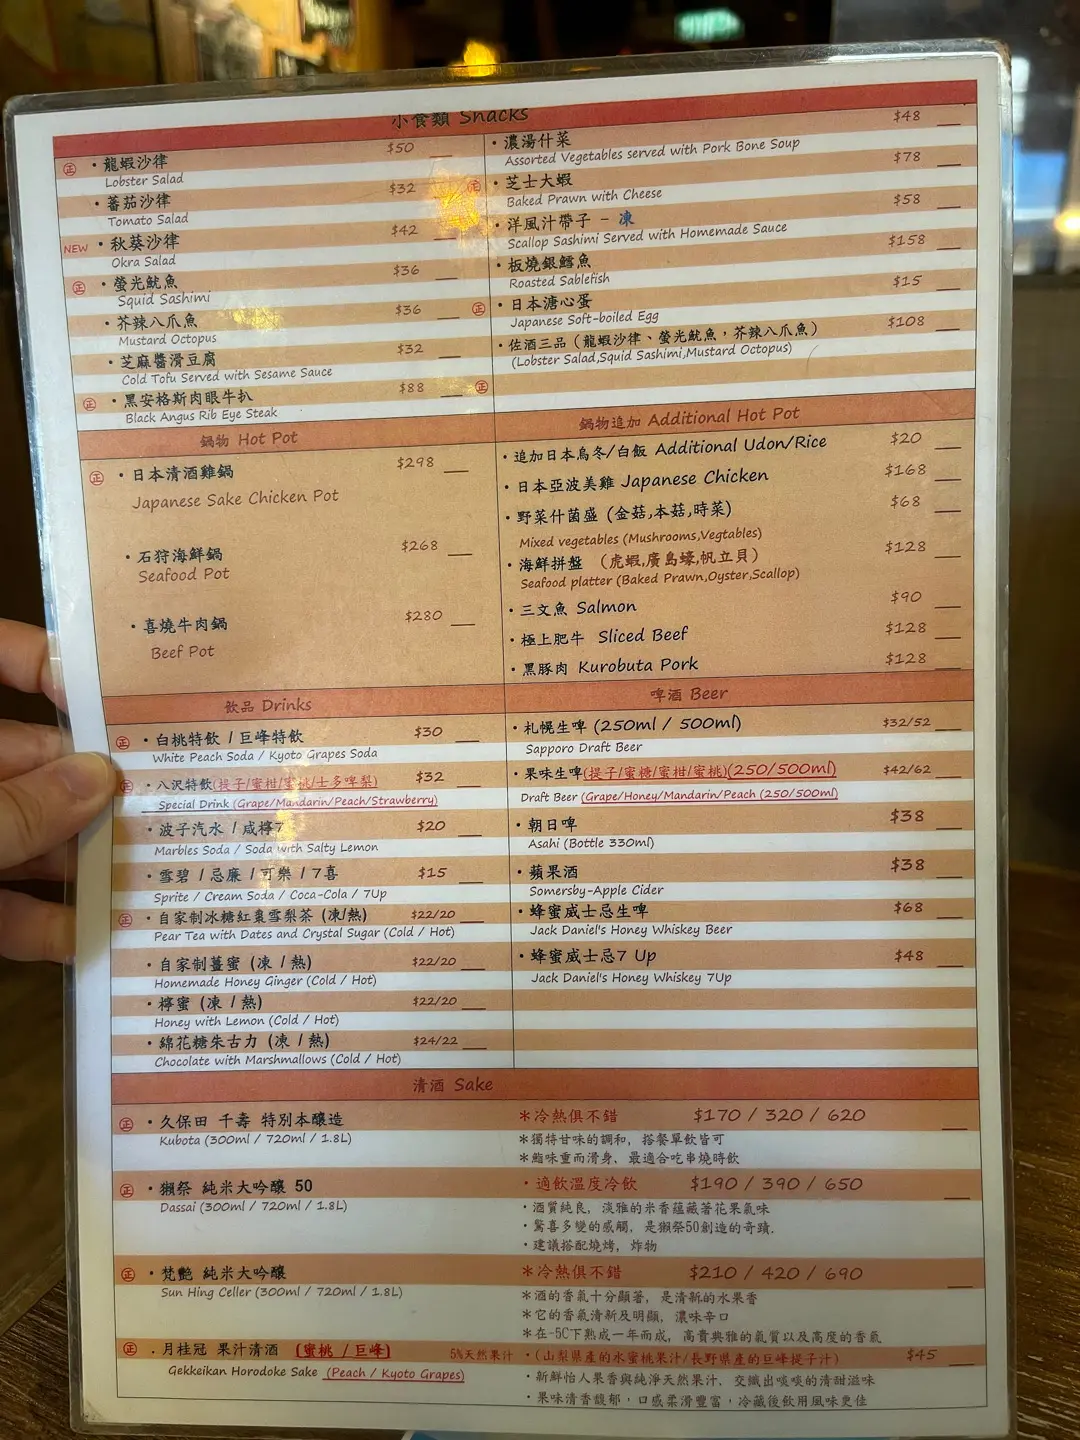 小食類 Snacks
正 ・龍蝦沙律 $50
Lobster Salad
・蕃茄沙律 $32
Tomato Salad
NEW ・秋葵沙律 $42
Okra Salad
正 ・螢光魷魚 $36
Squid Sashimi
・芥辣八爪魚 $36
Mustard Octopus
・芝麻醬滑豆腐 $32
Cold Tofu Served with Sesame Sauce
正 ・黑安格斯肉眼牛扒 $88
Black Angus Rib Eye Steak
・濃湯什菜 $48
Assorted Vegetables served with Pork Bone Soup
正 ・芝士大蝦 $78
Baked Prawn with Cheese
・洋風汁帶子 - 凍 $58
Scallop Sashimi Served with Homemade Sauce
・板燒銀鱈魚 $158
Roasted Sablefish
正 ・日本溏心蛋 $15
Japanese Soft-boiled Egg
・佐酒三品 (龍蝦沙律、螢光魷魚，芥辣八爪魚) $108
(Lobster Salad,Squid Sashimi,Mustard Octopus)
正
鍋物 Hot Pot
正 ・日本清酒雞鍋 $298
Japanese Sake Chicken Pot
・石狩海鮮鍋 $268
Seafood Pot
・喜燒牛肉鍋 $280
Beef Pot
鍋物追加 Additional Hot Pot
・追加日本烏冬/白飯 Additional Udon/Rice $20
・日本亞波美雞 Japanese Chicken $168
・野菜什菌盛 (金菇,本菇,時菜) $68
Mixed vegetables (Mushrooms,Vegtables)
・海鮮拼盤 (虎蝦,廣島蠔,帆立貝) $128
Seafood platter (Baked Prawn,Oyster,Scallop)
・三文魚 Salmon $90
・極上肥牛 Sliced Beef $128
・黑豚肉 Kurobuta Pork $128
飲品 Drinks
正 ・白桃特飲 / 巨峰特飲 $30
White Peach Soda / Kyoto Grapes Soda
正 ・八沢特飲(提子/蜜柑/蜜桃/士多啤梨) $32
Special Drink (Grape/Mandarin/Peach/Strawberry)
・波子汽水 / 咸檸7 $20
Marbles Soda / Soda with Salty Lemon
・雪碧 / 忌廉 / 可樂 / 7喜 $15
Sprite / Cream Soda / Coca-Cola / 7Up
正 ・自家制冰糖紅棗雪梨茶 (凍/熱) $22/20
Pear Tea with Dates and Crystal Sugar (Cold / Hot)
・自家制薑蜜 (凍 / 熱) $22/20
Homemade Honey Ginger (Cold / Hot)
・檸蜜 (凍 / 熱) $22/20
Honey with Lemon (Cold / Hot)
・綿花糖朱古力 (凍 / 熱) $24/22
Chocolate with Marshmallows (Cold / Hot)
啤酒 Beer
・札幌生啤 (250ml / 500ml) $32/52
Sapporo Draft Beer
・果味生啤(提子/蜜糖/蜜柑/蜜桃)(250/500ml) $42/62
Draft Beer (Grape/Honey/Mandarin/Peach (250/500ml)
・朝日啤 $38
Asahi (Bottle 330ml)
・蘋果酒 $38
Somersby-Apple Cider
・蜂蜜威士忌生啤 $68
Jack Daniel's Honey Whiskey Beer
・蜂蜜威士忌7 Up $48
Jack Daniel's Honey Whiskey 7Up
清酒 Sake
正 ・久保田 千壽 特別本釀造 ＊冷熱俱不錯 $170 / 320 / 620
Kubota (300ml / 720ml / 1.8L) ＊獨特甘味的調和, 搭餐單飲皆可
＊酯味重而滑身, 最適合吃串燒時飲
正 ・獺祭 純米大吟釀 50 ・適飲溫度冷飲 $190 / 390 / 650
Dassai (300ml / 720ml / 1.8L) ・酒質純良, 淡雅的米香蘊藏著花果氣味
・驚喜多變的感觸, 是獺祭50創造的奇蹟.
・建議搭配燒烤, 炸物
正 ・梵艶 純米大吟釀 ＊冷熱俱不錯 $210 / 420 / 690
Sun Hing Celler (300ml / 720ml / 1.8L) ＊酒的香氣十分顯著, 是清新的水果香
＊它的香氣清新及明顯, 濃味辛口
＊在-5C下熟成一年而成, 高貴典雅的氣質以及高度的香氣
正 ・月桂冠 果汁清酒 (蜜桃 / 巨峰) 5%天然果汁 ・(山梨県產的水蜜桃果汁/長野県產的巨峰提子汁) $45
Gekkeikan Horodoke Sake (Peach / Kyoto Grapes) ・新鮮怡人果香與純淨天然果汁, 交織出啖啖的清甜滋味
・果味清香馥郁，口感柔滑豐富，冷藏後飲用風味更佳